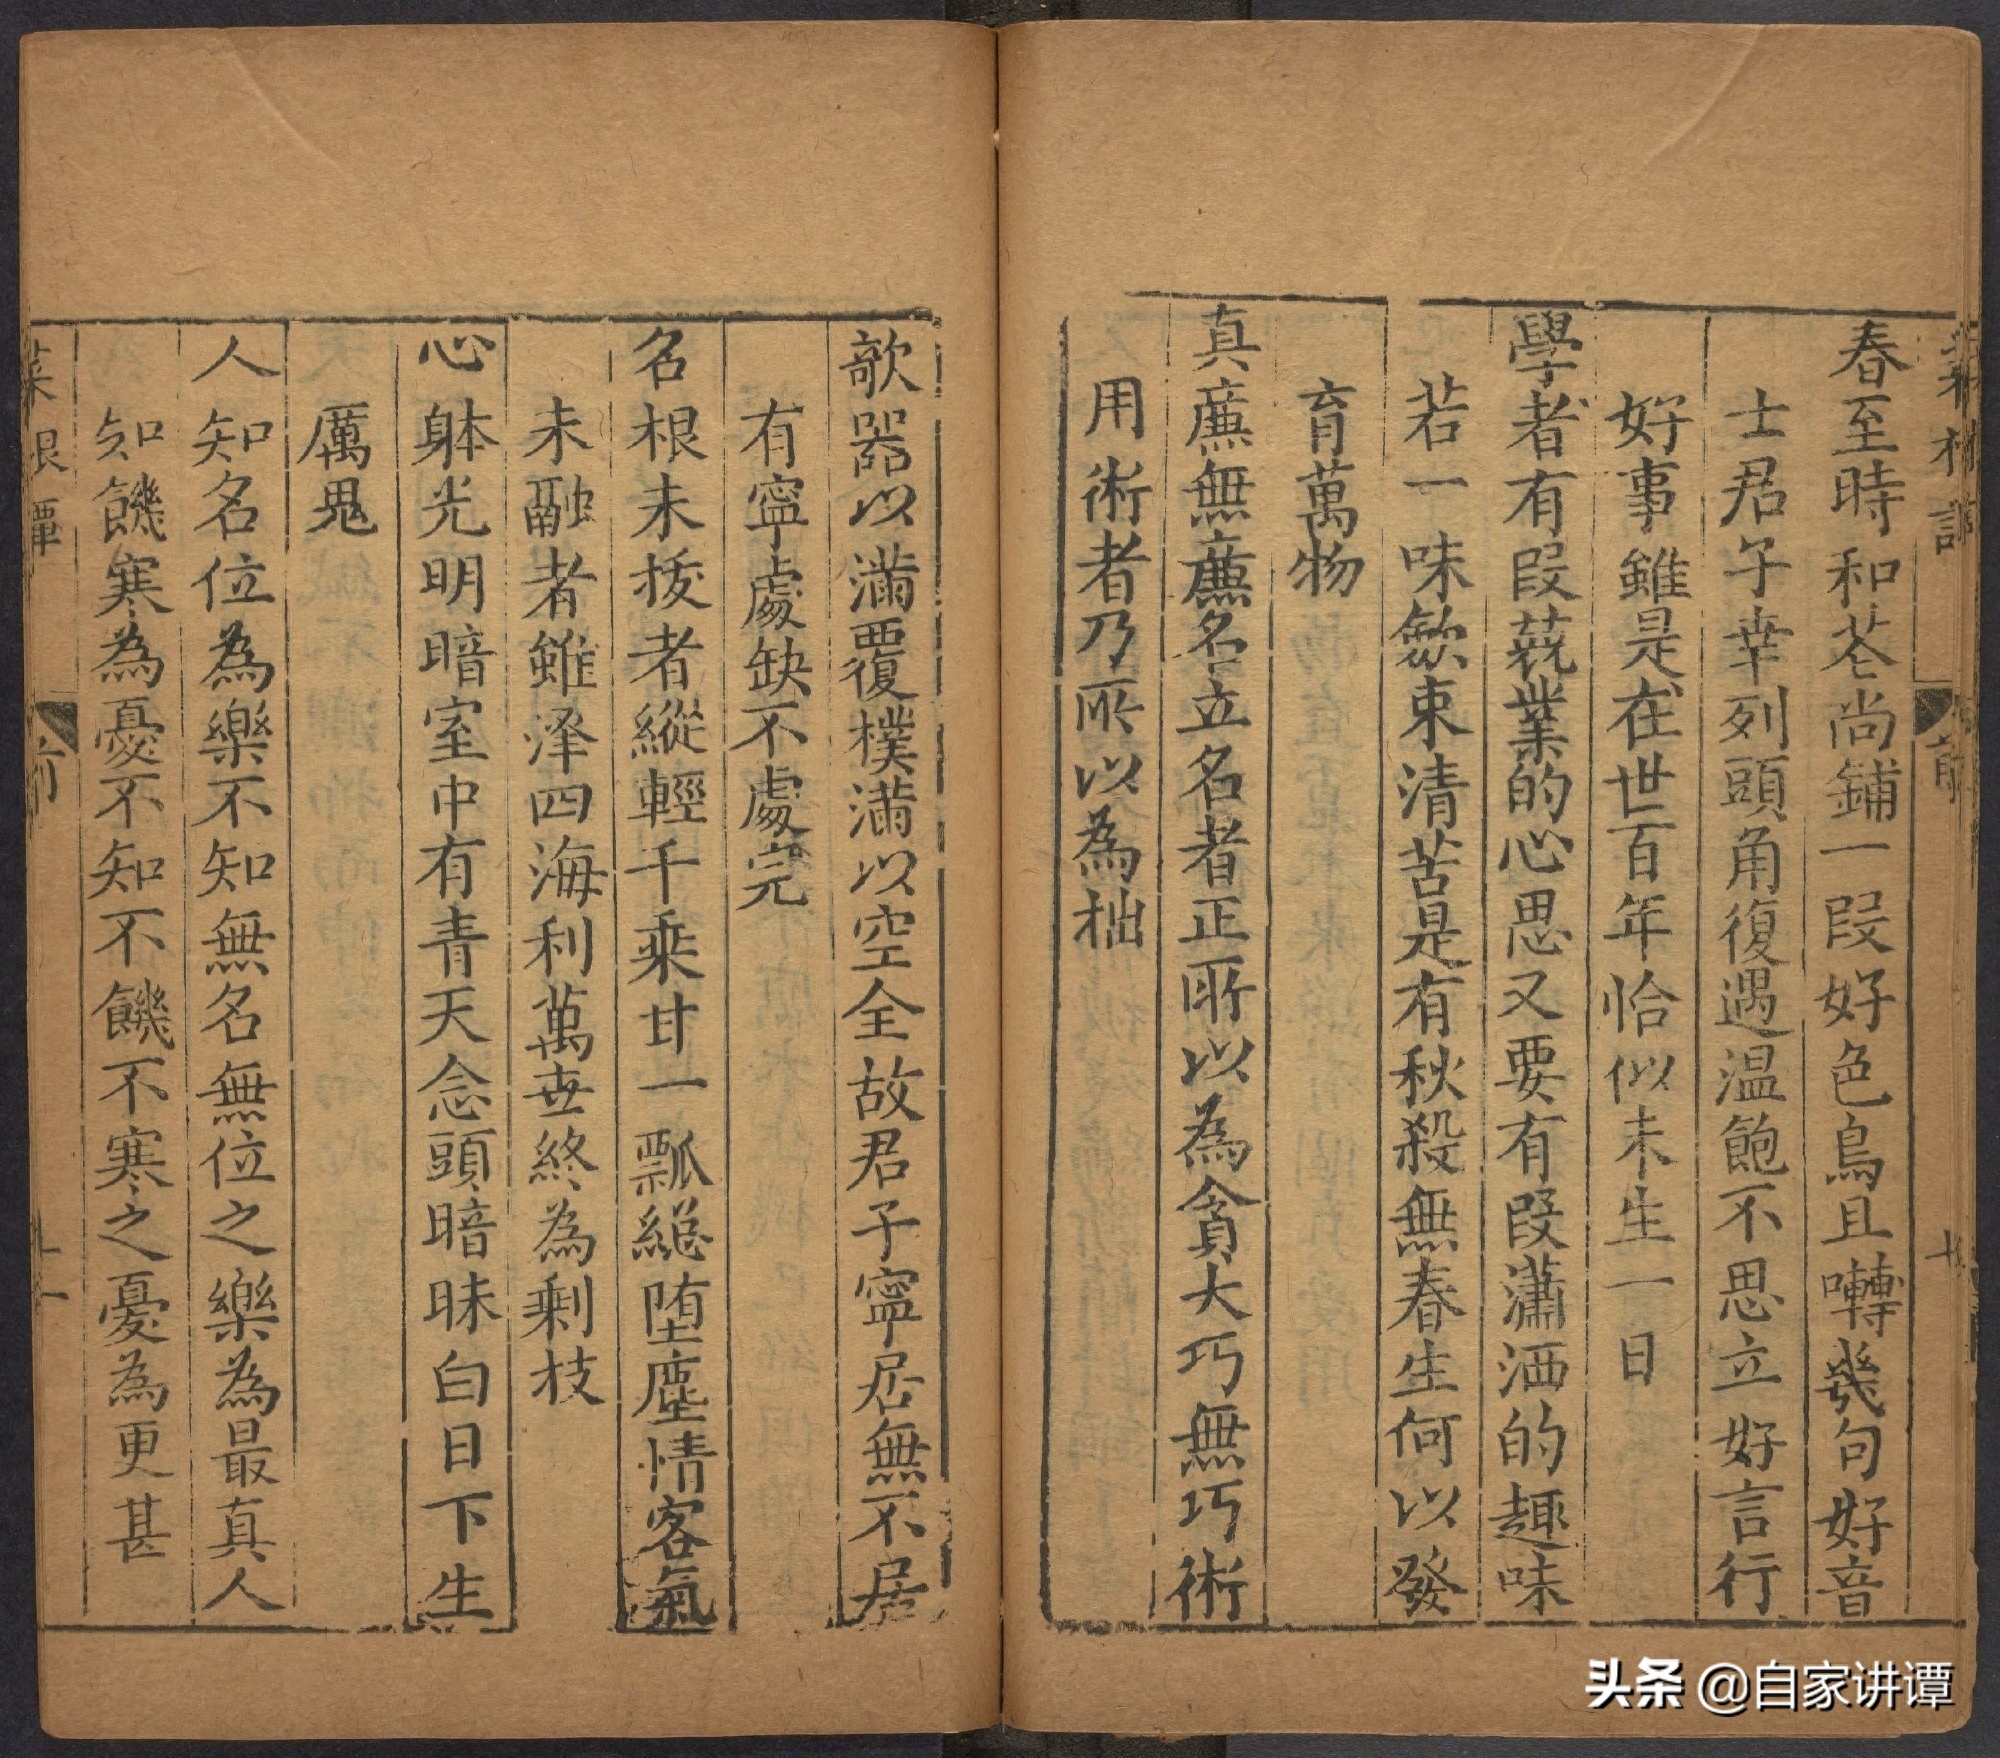 春至時和花尚鋪一段好色鳥且囀幾句好音
士君子幸列頭角復遇温飽不思立好言行
好事雖是在世百年恰似未生一日
學者有段兢業的心思又要有段瀟洒的趣味
若一味歛束清苦是有秋殺無春生何以發
育萬物
真廉無廉名立名者正所以為貪大巧無巧術
用術者乃所以為拙
欹器以滿覆樸滿以空全故君子寧居無不居
有寧處缺不處完
名根未拔者縱輕千乘甘一瓢緫墮塵情客氣
未融者雖澤四海利萬世終為剩技
心躰光明暗室中有青天念頭暗昧白日下生
厲鬼
人知名位為樂不知無名無位之樂為最真人
知饑寒為憂不知不饑不寒之憂為更甚
菜根譚 前
头条 @自家讲谭